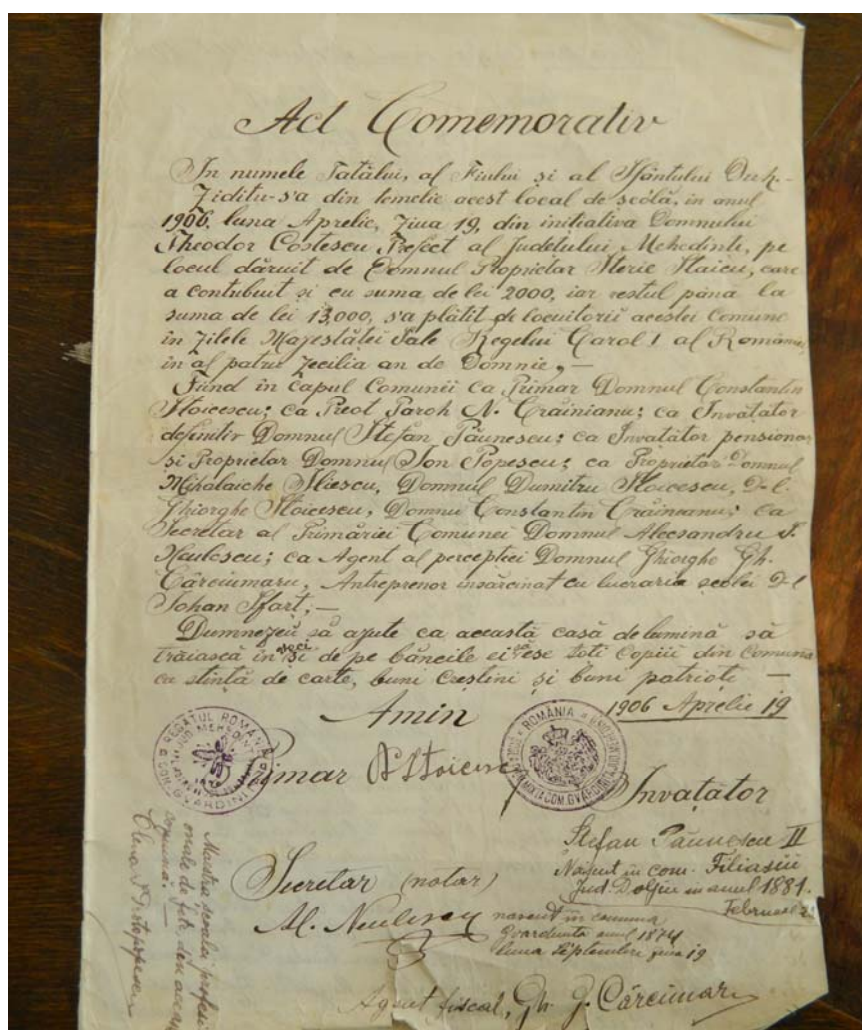 Act Comemorativ
In numele Tatălui, al Fiului și al Sfântului Duh.—
Ziditu-s'a din temelie acest local de scólă, in anul
1906, luna Aprelie, Ziua 19, din initiativa Domnului
Theodor Costescu Prefect al Judetului Mehedinti, pe
locul dăruit de Domnul Proprietar Sterie Staicu, care
a contubuit și cu suma de lei 2000, iar restul până la
suma de lei 13,000, s'a plătit de locuitorii acestei Comune
in Zilele Majestăței Sale Regelui Carol I al României,
in al patru Zecilia an de Domnie, —
Fiind in Capul Comunii ca Primar Domnul Constantin
Stoicescu; ca Preot Paroh N. Crăinianu; ca Invatător
definitiv Domnul Stefan Păunescu; ca Invatător pensionar
si Proprietar Domnul Ion Popescu; ca Proprietar Domnul
Mihalaiche Iliescu, Domnul Dumitru Stoicescu, D-l.
Ghiorghe Stoicescu, Domnu Constantin Crăineanu; ca
Secretar al Primăriei Comunei Domnul Alecsandru I.
ca Agent al percepției Domnul Ghiorghe Gh.
Cârciumaru, Antreprenor insărcinat cu lucraria școlei D-l
Iohan Sfart; —
Dumnezeu să ajute ca această casă de lumină să
trăiască in veci și de pe băncile ei să ese toti Copiii din Comuna
ca stintă de carte, buni Creștini și buni patrioti —
Amin 1906 Aprelie 19
REGATUL ROMÂNIA
JUD. MEHEDINTI
COM. GVARDINITA
Primar Stoicescu
ROMÂNIA
COM. GVARDINITA
Invatător
Stefan Păunescu II
Născut in com. Filiasii
Jud. Doljiu in anul 1881.
Februarie
Secretar (notar)
Al. nascut in comuna
Gvardinita anul 1874
luna Septembre ziua 19
Agent fiscal, Gh. G. Cârciumaru
Maistra scoalei profesi
onale de fete din aceasta
comună.
Elena